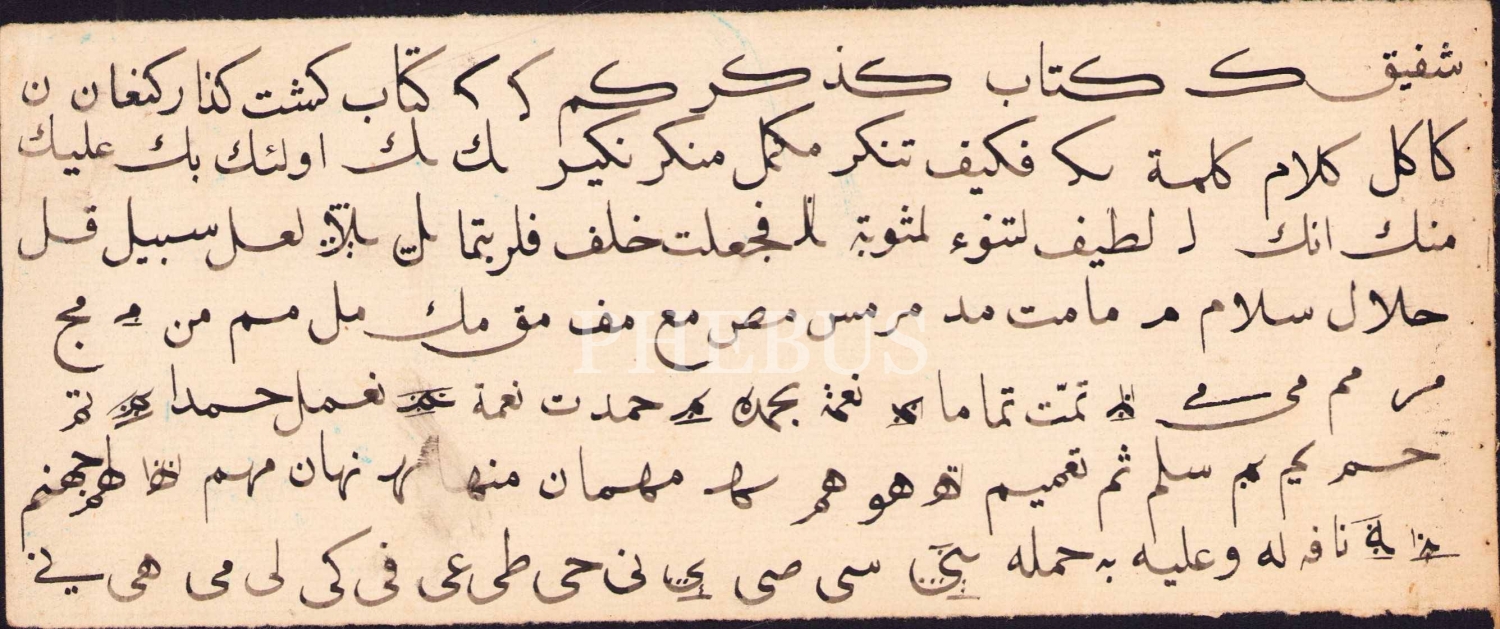 شفيق ك كتاب كذ كر كم ک ک كتاب كشت كذا ر كنعان ن
كا كل كلام كلمة فكيف تنكر مكمل منكر نكير لك اولئك بك عليك
منك انك لطيف لتنوء لمثوبة فجعلت خلف فلربتما لعل سبيل قل
حلال سلام م ما مت مد مر مس مص مع مف مق مك مل مم من مج
مر مم مى تمت تماما نعمة بحمده حمدت نعمة نعمل حمدا
حم سلم ثم تعميم هو هم مهمان منها نهان مهم جهنم
نافه له وعليه به حمله سى صى نى حى طى عى فى كى لى مى هى
PHEBUS